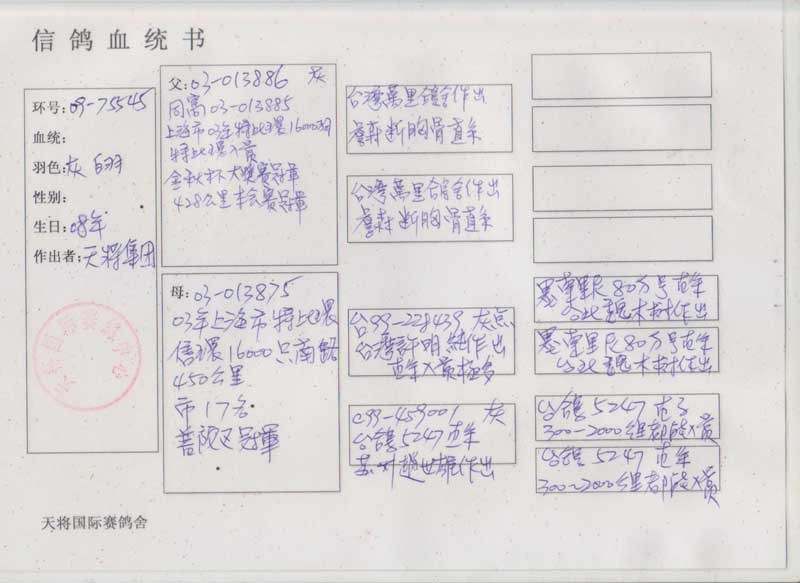 信鸽血统书
环号:09-75545
血统:
羽色:灰 白羽
性别:
生日:08年
作出者:天将集团
父:03-013886 灰
同窝03-013885
上海市03年特比环16000羽
特比环入赏
金秋杯大奖赛冠軍
428公里本会赛冠軍
母:03-013875
03年上海市特比环
信环16000只南路
450公里
市17名
普陀区冠軍
台湾萬里鸽舍作出
詹森断胸骨直系
台湾萬里鸽舍作出
詹森断胸骨直系
台99-228439 灰点
台湾許明純作出
直年入赏极多
c99-459001 灰
台鸽5247直年
苏州趙世雄作出
80万号直年
台北魏木樹作出
80万号直年
台北魏木樹作出
台鸽5247直子
300-2000公里都能入赏
台鸽5247直年
300-2000公里都能入赏
天将国际赛鸽舍